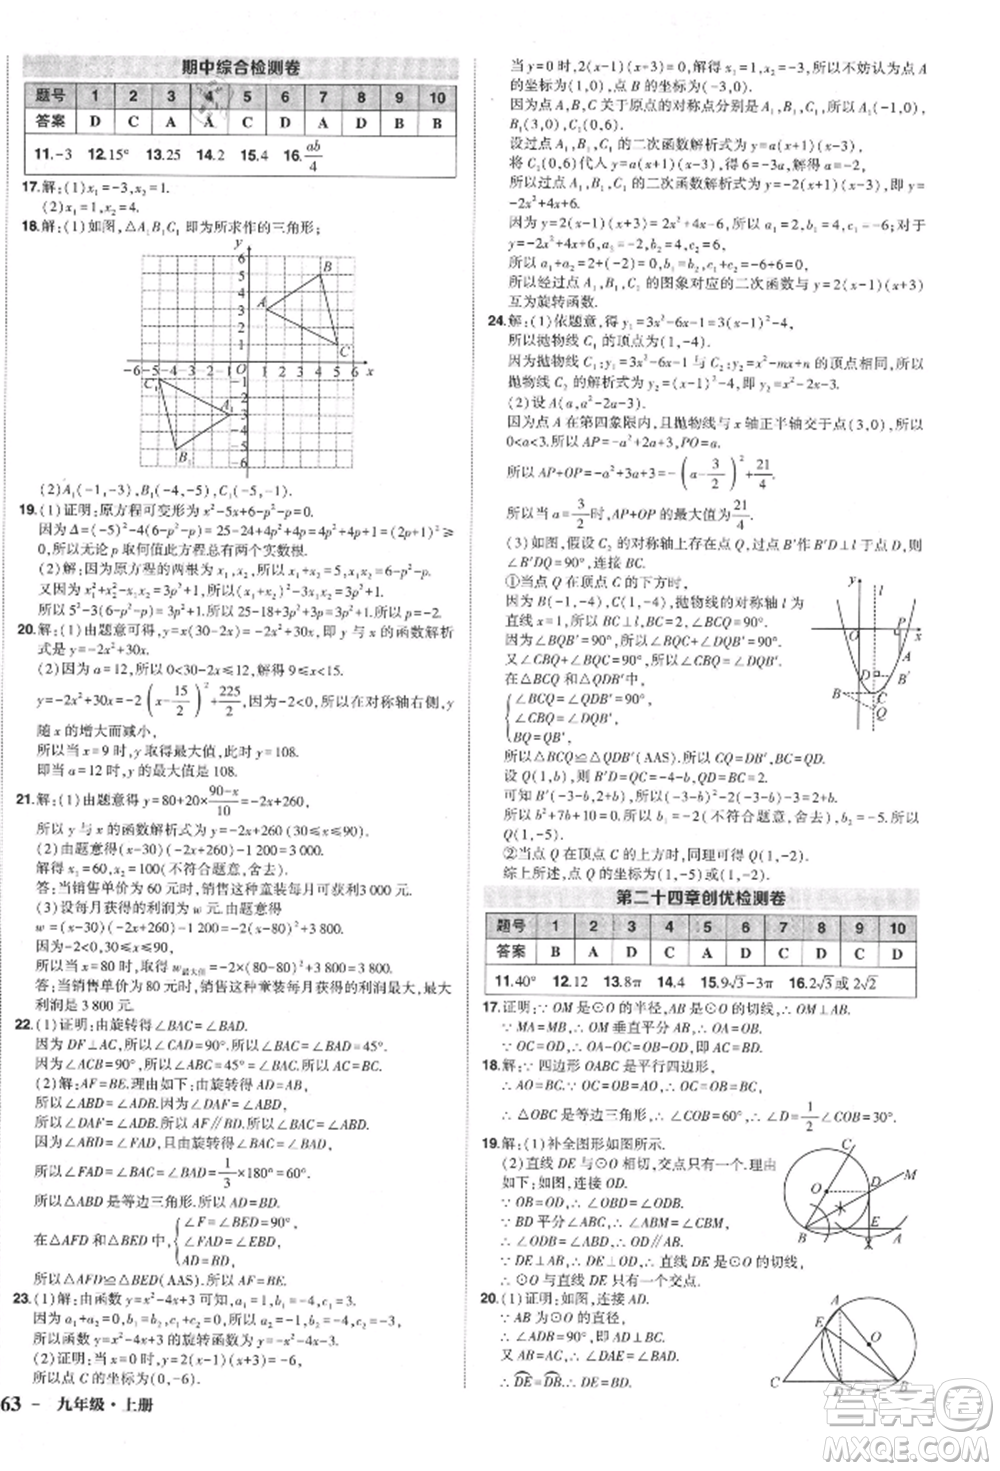 期中综合检测卷
题号 1 2 3 4 5 6 7 8 9 10
答案 D C A A C A D D B B
11.-3 12.15° 13.25 14.2 15.4 16.ab/4
17.解:(1)x₁=-3,x₂=1.
(2)x₁=1,x₂=4.
18.解:(1)如图,△A₁B₁C₁ 即为所求作的三角形;
(2)A₁(-1,-3),B₁(-4,-5),C₁(-5,-1).
19.(1)证明:原方程可变形为 x²-5x+6-p²-p=0.
因为 Δ=(-5)²-4(6-p²-p)=25-24+4p²+4p=4p²+4p+1=(2p+1)²≥
0,所以无论 p 取何值此方程总有两个实数根.
(2)解:因为原方程的两根为 x₁,x₂,所以 x₁+x₂=5,x₁x₂=6-p²-p.因为
x₁²+x₂²-x₁x₂=3p²+1,所以(x₁+x₂)²-3x₁x₂=3p²+1.
所以 5²-3(6-p²-p)=3p²+1.所以 25-18+3p²+3p=3p²+1.所以 p=-2.
20.解:(1)由题意可得,y=x(30-2x)=-2x²+30x,即 y 与 x 的函数解析
式是 y=-2x²+30x.
(2)因为 a=12,所以 0<30-2x≤12,解得 9≤x<15.
y=-2x²+30x=-2(x-15/2)²+225/2.因为-2<0,所以在对称轴右侧,y
随 x 的增大而减小,
所以当 x=9 时,y 取得最大值,此时 y=108.
即当 a=12 时,y 的最大值是 108.
21.解:(1)由题意得 y=80+20×(90-x)/10=-2x+260,
所以 y 与 x 的函数解析式为 y=-2x+260(30≤x≤80).
(2)由题意得(x-30)(-2x+260)=4 200.
解得 x₁=60,x₂=100(不符合题意,舍去).
答:当销售单价为 60 元时,销售这种童装每月可获利 4 200 元.
(3)设每月获得的利润为 w 元.由题意得
w=(x-30)(-2x+260)=-2(x-80)²+3 800.
因为-2<0,
所以当 x=80 时,w最大值=-2(80-80)²+3 800=3 800.
答:当销售单价为 80 元时,销售这种童装每月获得的利润最大,最大
利润是 3 800 元.
22.(1)证明:由旋转得∠BAC=∠BAD.
因为 DF⊥AC,所以∠CAD=90°.所以∠BAC=∠BAD=45°.
因为∠ACB=90°,所以∠ABC=45°=∠BAC.所以 AC=BC.
(2)解:AF=BE.理由如下:由旋转得 AD=AB,
所以∠ABD=∠ADB.因为∠BAC=∠BAD,AC=BC,
所以∠ABC=∠BAC=∠BAD.所以 AF∥BC.
所以∠ABC=∠FAD,且由旋转得∠BAC=∠BAD.
所以∠FAD=∠BAC=∠BAD=1/3×180°=60°.
所以△ABD 是等边三角形.所以 AD=BD.
在△AFD 和△BED 中,{∠F=∠BED=90°, ∠FAD=∠EBD, AD=BD,
所以△AFD≌△BED(AAS).所以 AF=BE.
23.(1)解:由函数 y=x²-4x+3 可知,a₁=1,b₁=-4,c₁=3.
因为 a₁+a₂=0,b₁=b₂,c₁+c₂=0,所以 a₂=-1,b₂=-4,c₂=-3.
所以函数 y=x²-4x+3 的旋转函数为 y=-x²-4x-3.
(2)证明:当 x=0 时,y=2(x-1)(x+3)=-6,
所以点 C 的坐标为(0,-6).
63 - 九年级·上册
当 y=0 时,2(x-1)(x+3)=0,解得 x₁=1,x₂=-3,所以不妨设点 A
的坐标为(1,0),点 B 的坐标为(-3,0).
因为点 A,B,C 关于原点的对称点分别是 A₁,B₁,C₁,所以 A₁(-1,0),
B₁(3,0),C₁(0,6).
设过点 A₁,B₁,C₁ 的二次函数解析式为 y=a(x+1)(x-3),
将 C₁(0,6)代入 y=a(x+1)(x-3),得 6=-3a,解得 a=-2.
所以过点 A₁,B₁,C₁ 的二次函数解析式为 y=-2(x+1)(x-3),即
y=-2x²+4x+6.
因为 y=2(x-1)(x+3)=2x²+4x-6,所以 a₁=2,b₁=4,c₁=-6,
y=-2x²+4x+6,a₂=-2,b₂=4,c₂=6,所以 a₁+a₂=0,b₁=b₂,c₁+c₂=0.
所以经过点 A₁,B₁,C₁ 的图象对应的二次函数与 y=2(x-1)(x+3)
互为旋转函数.
24.解:(1)依题意,得 y₁=3x²-6x-1=3(x-1)²-4,
所以抛物线 C₁ 的顶点为(1,-4).
因为抛物线 C₁:y₁=3x²-6x-1 与 C₂:y₂=x²-mx+n 的顶点相同,所以
抛物线 C₂ 的解析式为 y₂=(x-1)²-4=x²-2x-3.
(2)设 A(a,a²-2a-3).
因为点 A 在第四象限内,且抛物线与 x 轴正半轴交于点(3,0),所以
0<a<3.所以 AP=-a²+2a+3,PO=a.
所以 AP+OP=-a²+3a+3=-(a-3/2)²+21/4.
所以当 a=3/2时,AP+OP 的最大值为21/4.
(3)如图,假设 C₂ 的对称轴上存在点 Q,过点 B′作 B′D⊥l 于点 D,
所以∠B′DQ=90°,连接 BC.
①当点 Q 在顶点 C 的下方时,
因为 B(-1,-4),C(1,-4),抛物线的对称轴 l 为
直线 x=1,所以 BC⊥l,BC=2,∠BCQ=90°.
因为∠BQB′=90°,所以∠BQC+∠B′QD=90°.
又∠CBQ+∠BQC=90°,所以∠CBQ=∠DQB′.
在△BCQ 和△QDB′中,
{∠BCQ=∠QDB′=90°, ∠CBQ=∠DQB′, BQ=QB′,
所以△CBQ≌△DQB′(AAS).所以 CQ=DB′,BC=QD=2.
设 Q(1,b),所以 B′D=CQ=-4-b,QD=BC=2.
可知 B′(-3-b,2+b),所以(-3-b)²-2(-3-b)-3=2+b.
所以 b²+7b+10=0.所以 b₁=-2(不符合题意,舍去),b₂=-5.所以
Q(1,-5).
②当点 Q 在顶点 C 的上方时,同理可得 Q(1,-2).
综上所述,点 Q 的坐标为(1,-5)或(1,-2).
第二十四章创优检测卷
题号 1 2 3 4 5 6 7 8 9 10
答案 B A D C A D C A D D
11.40° 12.12 13.8π 14.4 15.9√3-3π 16.2√3或2√2
17.证明:∵OM 是⊙O 的半径,AB 是⊙O 的切线,∴OM⊥AB.
∵MA=MB,∴OM 垂直平分 AB,∴OA=OB.
∵OC=OD,∴OA-OC=OB-OD,∴AC=BD.
18.解:∵四边形 OABC 是平行四边形,∴OC=AB,∠A=∠C.
∴△OBC 是等边三角形,∴∠C=60°,∴∠COE=1/2∠COB=30°.
19.解:(1)补全图形如图所示.
(2)直线 DE 与⊙O 相切,交点只有一个.理由
如下:
∵OB=OD,∴∠OBD=∠ODB.
∵BD 平分∠ABC,∴∠ABM=∠CBM,
∴∠ODB=∠ABD,∴OD∥AB.
∵DE⊥AB,∴DE⊥OD.∴直线 DE 是⊙O 的切线,
∴⊙O 与直线 DE 只有一个交点.
20.(1)证明:如图,连接 AD.
∵AB 为⊙O 的直径,
∴∠ADB=90°,∴AD⊥BC.
又∵AB=AC,∴∠CAD=∠BAD,
∴DE=BD,∴DE=BD.
答案圈
MXQE.COM